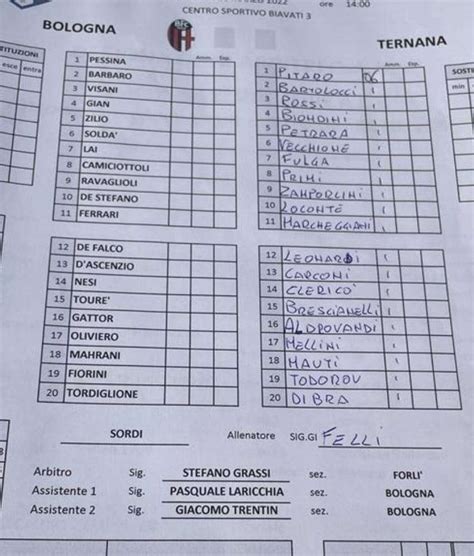 2022 ore 14:00
CENTRO SPORTIVO BIAVATI 3
BOLOGNA
TERNANA
esce entre
Amm. Esp.
Amm. Esp.
min
1 PESSINA
2 BARBARO
3 VISANI
4 GIAN
5 ZILIO
6 SOLDA'
7 LAI
8 CAMICIOTTOLI
9 RAVAGLIOLI
10 DE STEFANO
11 FERRARI
1 PITARO 06
2 BARTOLOCCI
3 ROSSI
4 BIONDINI
5 PETRARA
6 VECCHIONE
7 FULGA
8 PRIMI
9 ZAMPORLINI
10 LOCONTE
11 MARCHEGGIANI
12 DE FALCO
13 D'ASCENZIO
14 NESI
15 TOURE'
16 GATTOR
17 OLIVIERO
18 MAHRANI
19 FIORINI
20 TORDIGLIONE
12 LEONARDI
13 CARCONI
14 CLERICO'
15 BRESCIANELLI
16 ALDROVANDI
17 MELLINI
18 MAUTI
19 TODOROV
20 DIBRA
SORDI Allenatore SIG.GI FELLI
Arbitro Sig. STEFANO GRASSI sez. FORLI'
Assistente 1 Sig. PASQUALE LARICCHIA sez. BOLOGNA
Assistente 2 Sig. GIACOMO TRENTIN sez. BOLOGNA